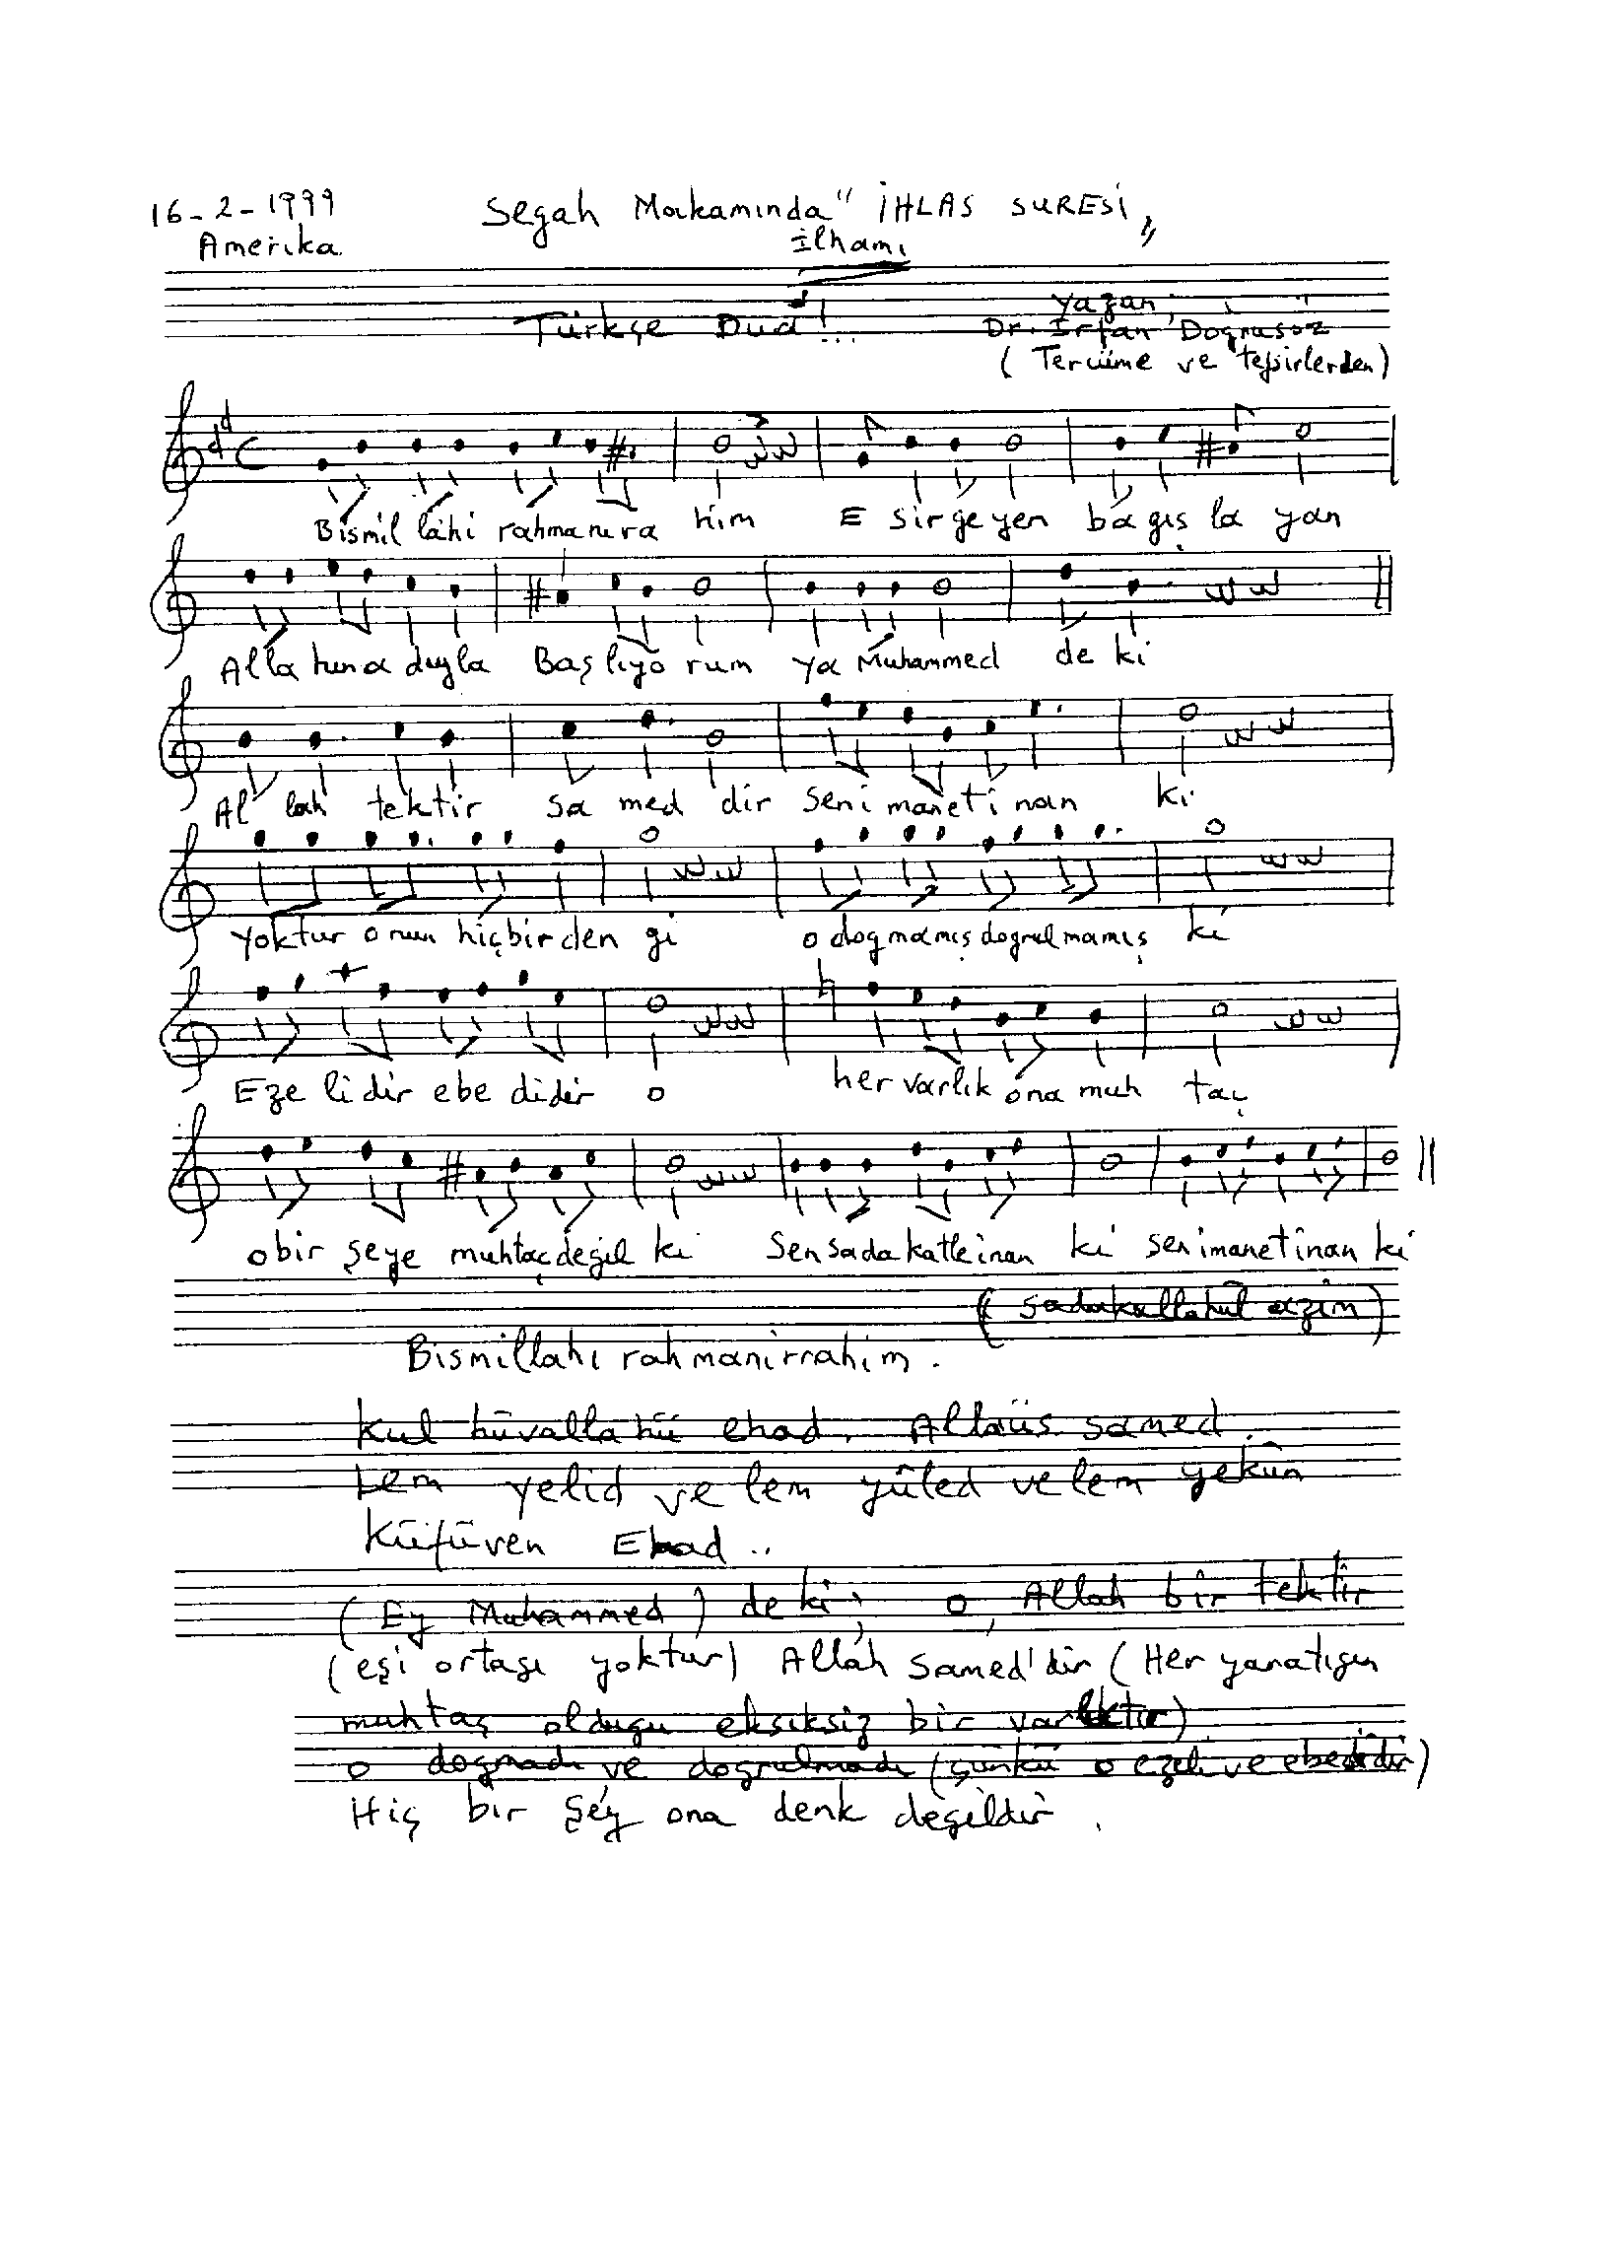 16-2-1999 Segah Makamında "İHLAS SURESİ"
Amerika İlhamı
Türkçe Dua!... Yazan;
Dr. İrfan Doğrusöz
(Tercüme ve tefsirlerden)
Bismil lâhi rahmanı ra him E sirgeyen bağış la yan
Alla hın a dıyla Başlıyo rum ya Muhammed de ki
Al lah tektir sa med dir Sen i manet i nan ki
Yoktur onun hiçbir den gi o doğmamış doğrulmamış ki
Eze li dir ebe didir o her varlık ona muh taç
o bir şeye muhtaç değil ki Sen sada katle inan ki sen imanet inan ki
(sadakallahül azim)
Bismillahi rahmanirrahim.
Kul hüvallahü ehad. Allaüs samed.
Lem yelid ve lem yûled ve lem yekûn
Küfüven Ehad..
(Ey Muhammed) de ki; o, Allah bir tektir
(eşi ortağı yoktur) Allah Samed'dir (Her yaratığın
muhtaç olduğu eksiksiz bir varlıktır)
o doğmadı ve doğrulmadı (çünkü o ezeli ve ebedidir)
Hiç bir Şey ona denk değildir.